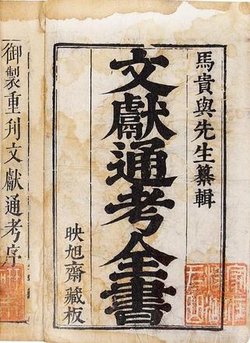 馬貴與先生纂輯
文獻通考全書
映旭齋藏板
御製重刋文獻通考序